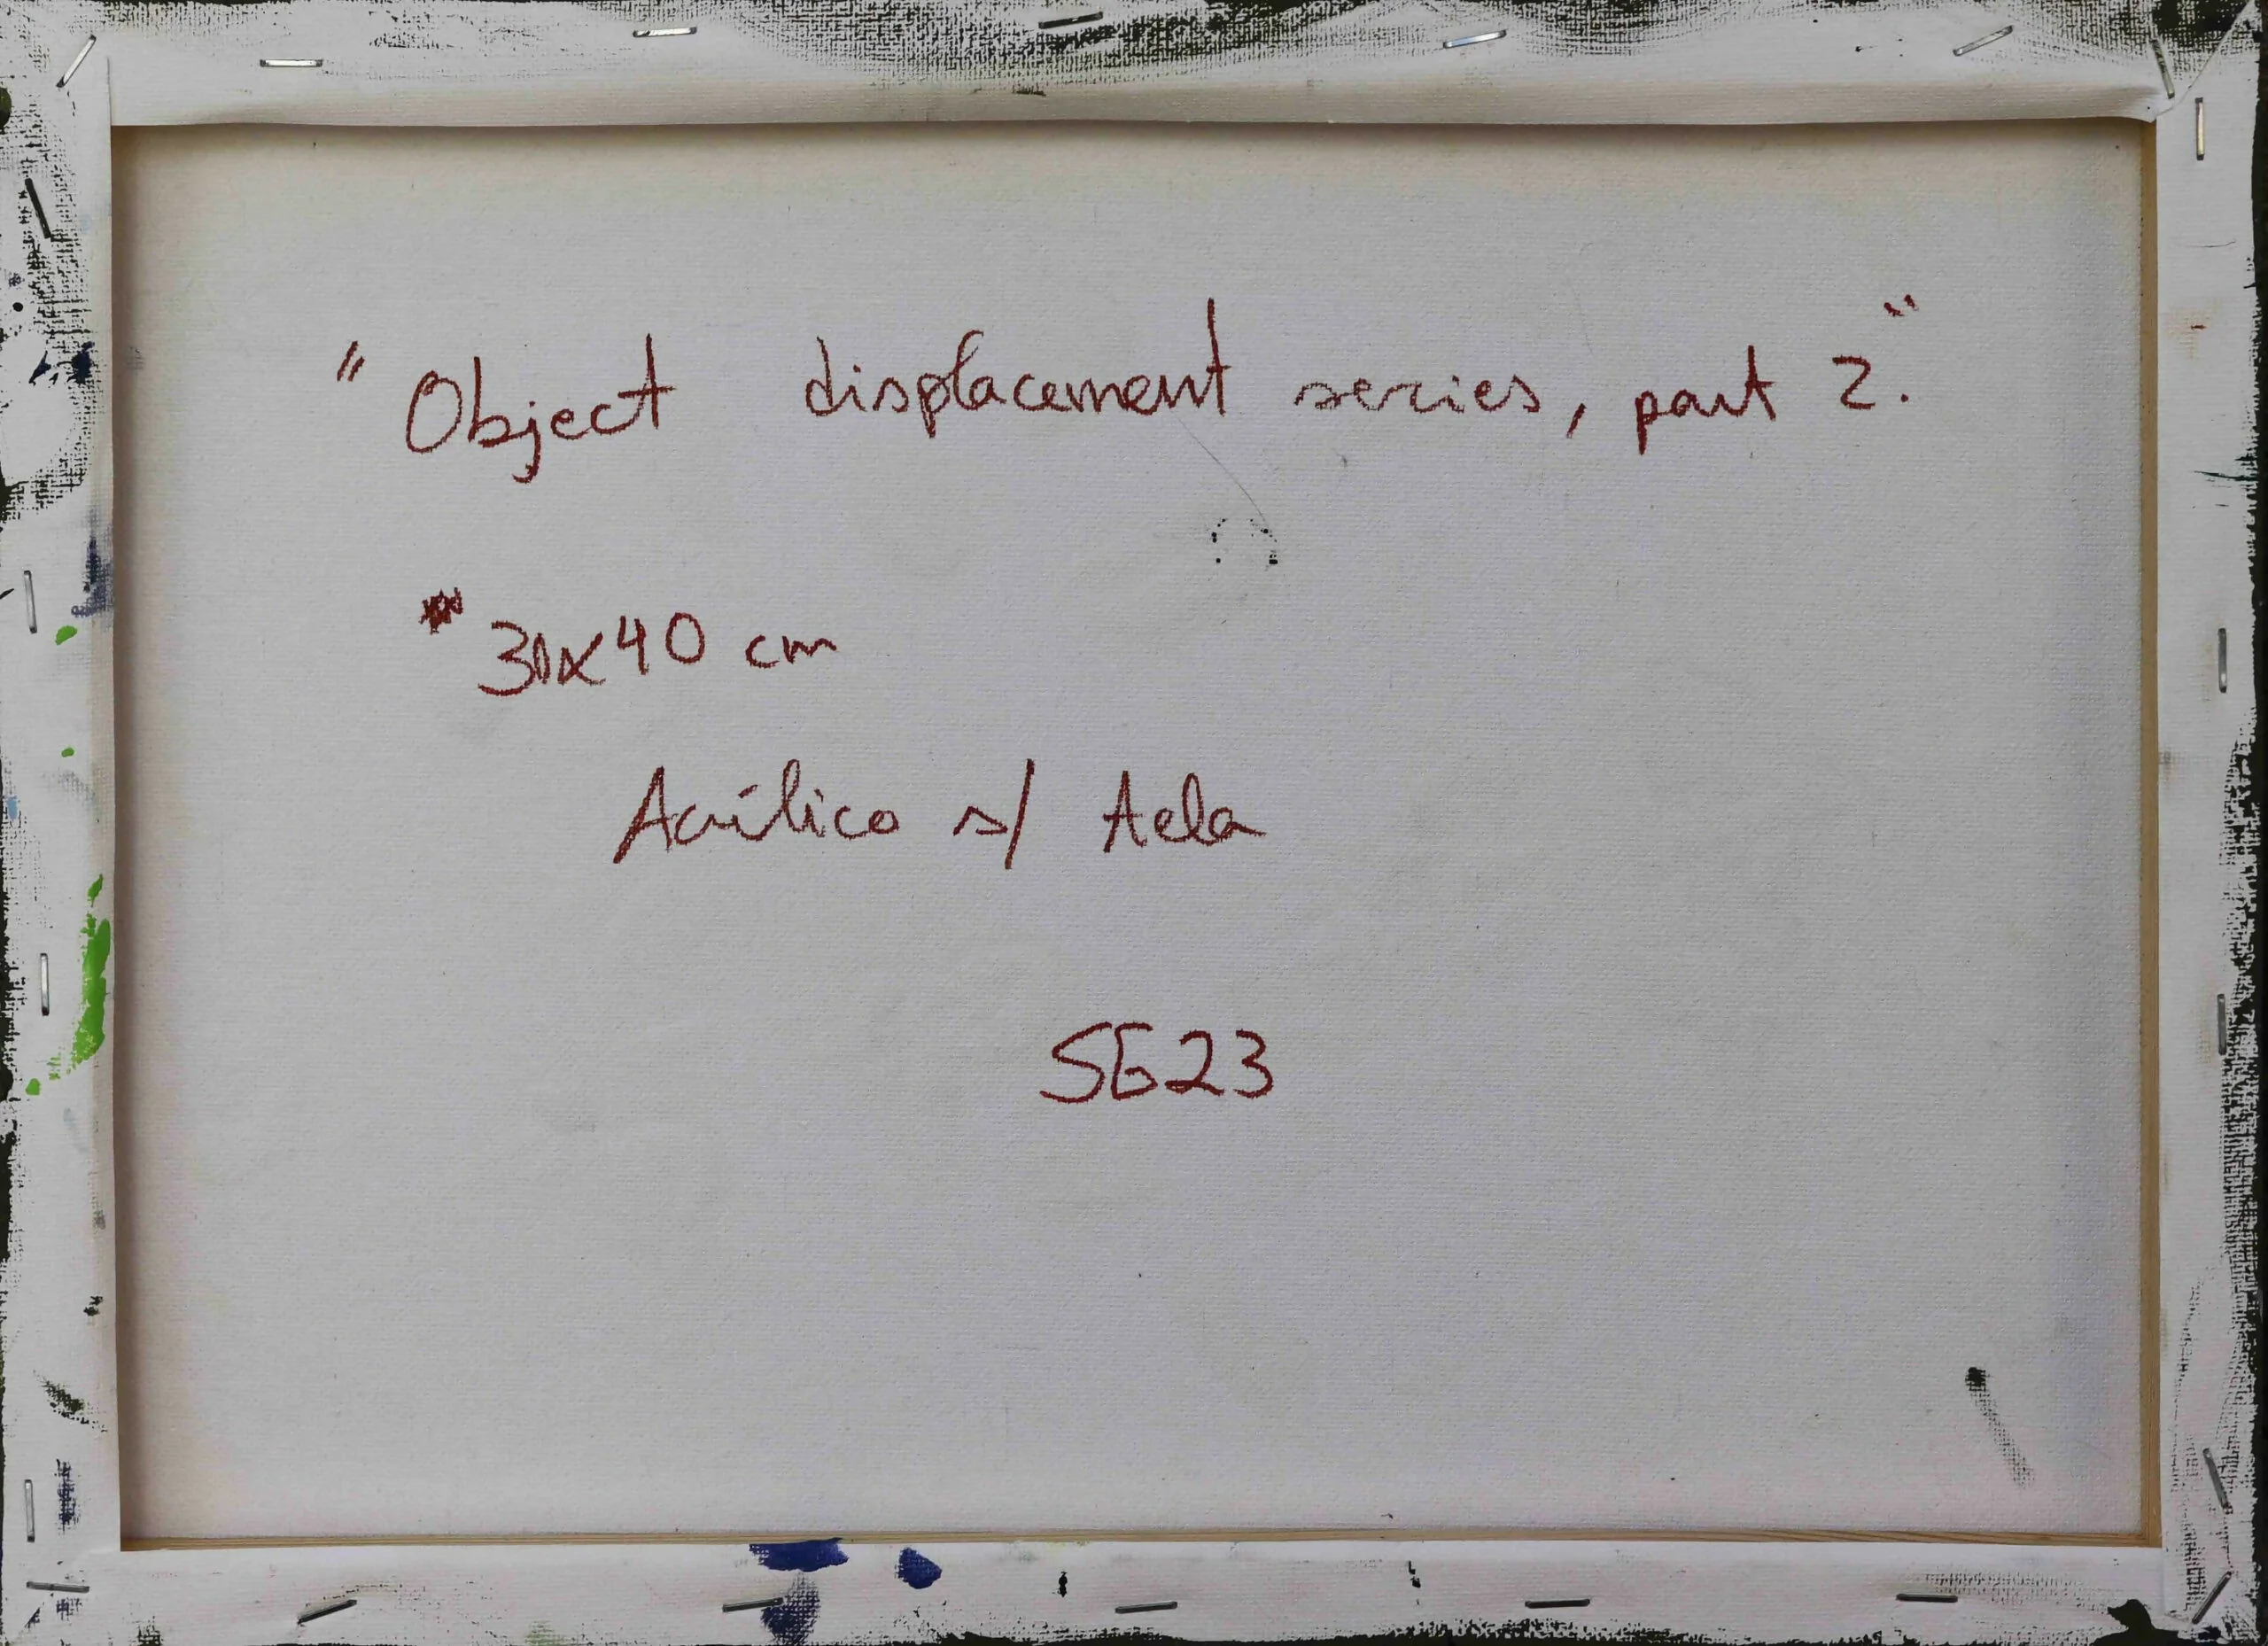 "Object displacement series, part 2."
30x40 cm
Acrílico s/ tela
SG23